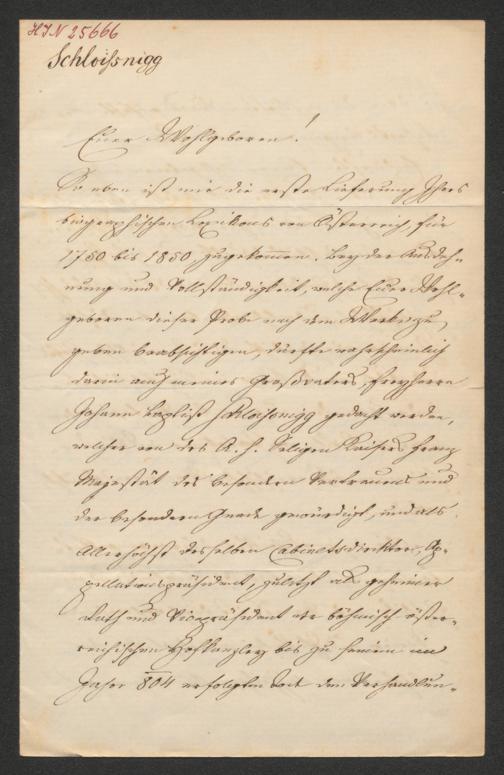 HIN 25666
Schloißnigg
Euer Wohlgeboren!
So eben ist mir die erste Lieferung Ihres
biographischen Lexikons von Österreich, für
1750 bis 1850, zugekommen. Bey der Ausdeh-
nung und Vollständigkeit, welche Euer Wohl-
geboren dieser Probe nach dem Werke zu
geben beabsichtigen, dürfte wahrscheinlich
darin auch meines Großvaters, Freyherrn
Johann Baptist Schloißnigg gedacht werden,
welcher von des A. h. seligen Kaisers Franz
Majestät des besondern Vertrauens und
der besondern Gnade gewürdigt, und als
Allerhöchst desselben Cabinetsdirektor, Ap-
pellationspräsident, zuletzt als geheimer
Rath und Vicepräsident der böhmisch öster-
reichischen Hofkanzley bis zu seinem im
Jahre 804 erfolgten Tod den Verhandlun-